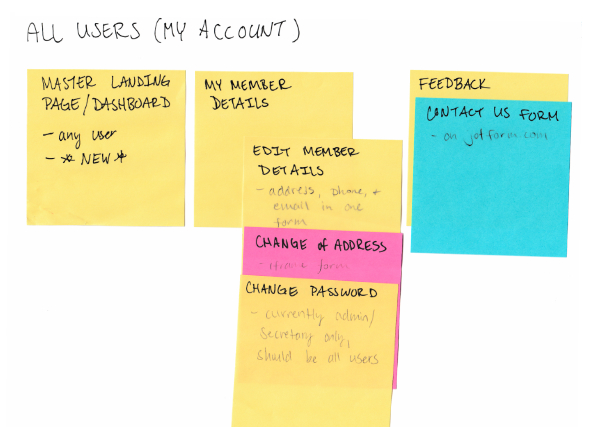 ALL USERS (MY ACCOUNT)
MASTER LANDING
PAGE/DASHBOARD
- any user
- * NEW *
MY MEMBER
DETAILS
EDIT MEMBER
DETAILS
- address, phone, +
email in one
form
CHANGE of ADDRESS
- iframe form
CHANGE PASSWORD
- currently admin/
secretary only,
should be all users
FEEDBACK
CONTACT US FORM
- on jotform.com